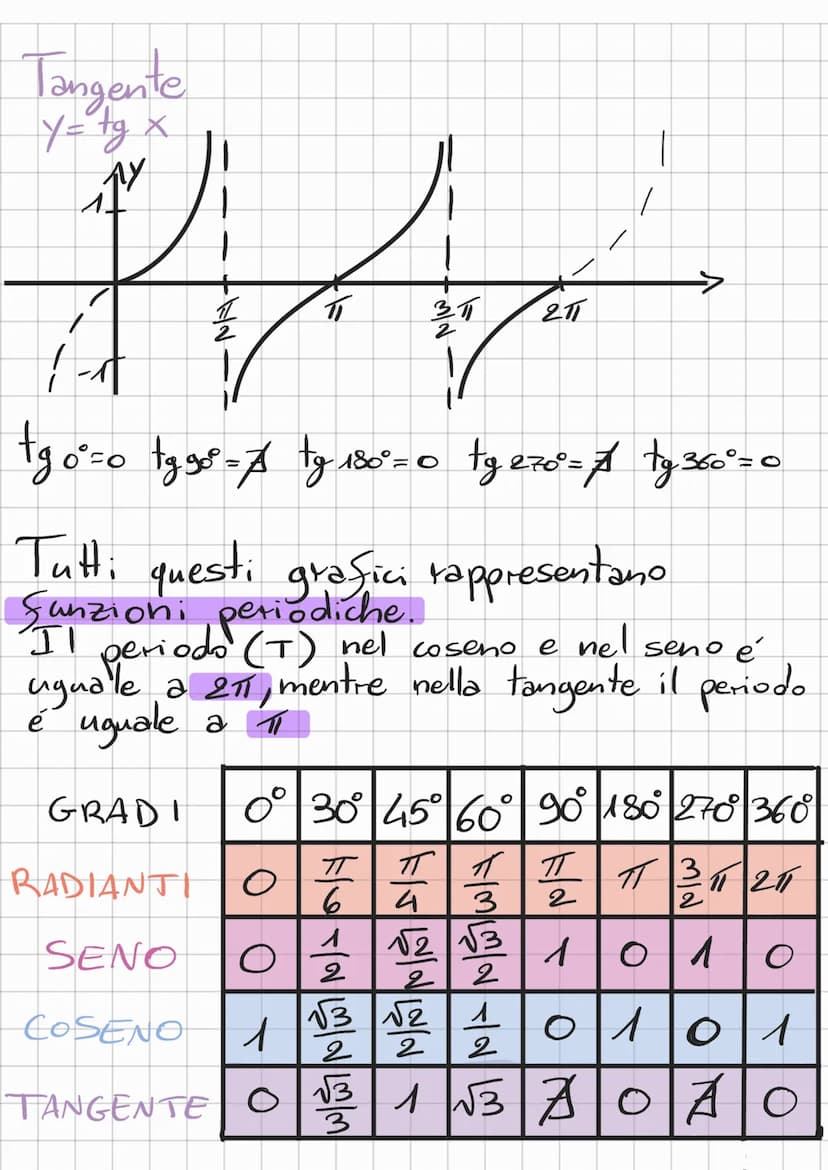 Tangente
y = tg x
y
1
π/2 π 3/2 π 2π
-1
tg 0° = 0 tg 90° = ∄ tg 180° = 0 tg 270° = ∄ tg 360° = 0
Tutti questi grafici rappresentano
funzioni periodiche.
Il periodo (T) nel coseno e nel seno é
uguale a 2π, mentre nella tangente il periodo
é uguale a π
GRADI 0° 30° 45° 60° 90° 180° 270° 360°
RADIANTI 0 π/6 π/4 π/3 π/2 π 3/2 π 2π
SENO 0 1/2 √2/2 √3/2 1 0 1 0
COSENO 1 √3/2 √2/2 1/2 0 1 0 1
TANGENTE 0 √3/3 1 √3 ∄ 0 ∄ 0